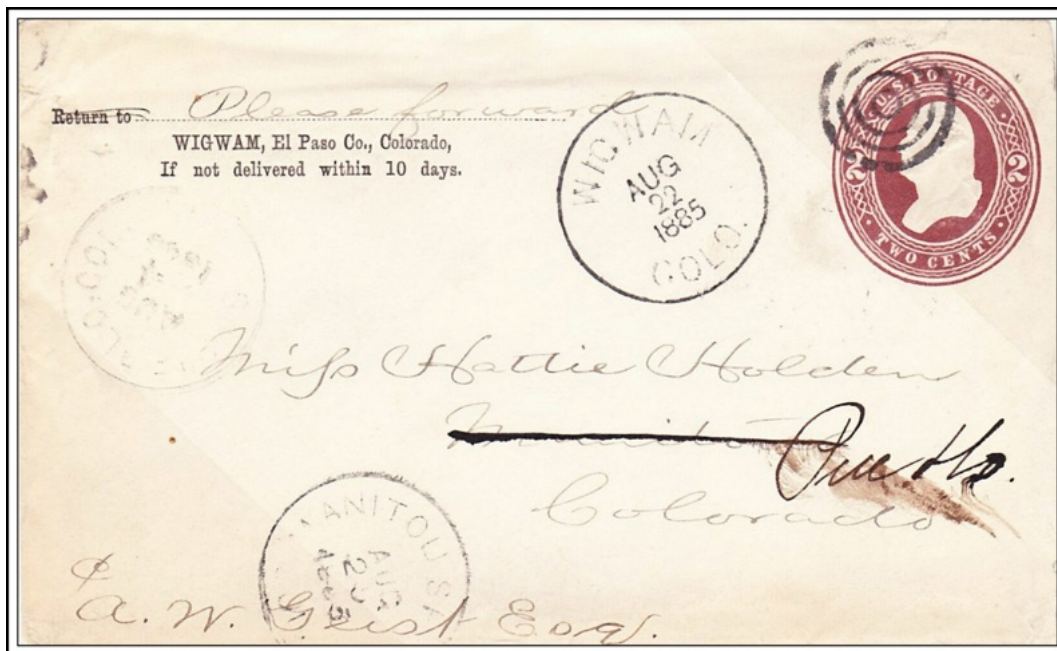 Return to Please forward
WIGWAM, El Paso Co., Colorado,
If not delivered within 10 days.
WIGWAM
AUG
22
1885
COLO.
U.S. POSTAGE
2 2
TWO CENTS
Miss Hattie Holden
Pueblo.
Colorado
MANITOU
AUG
A. W. Geist Esq.